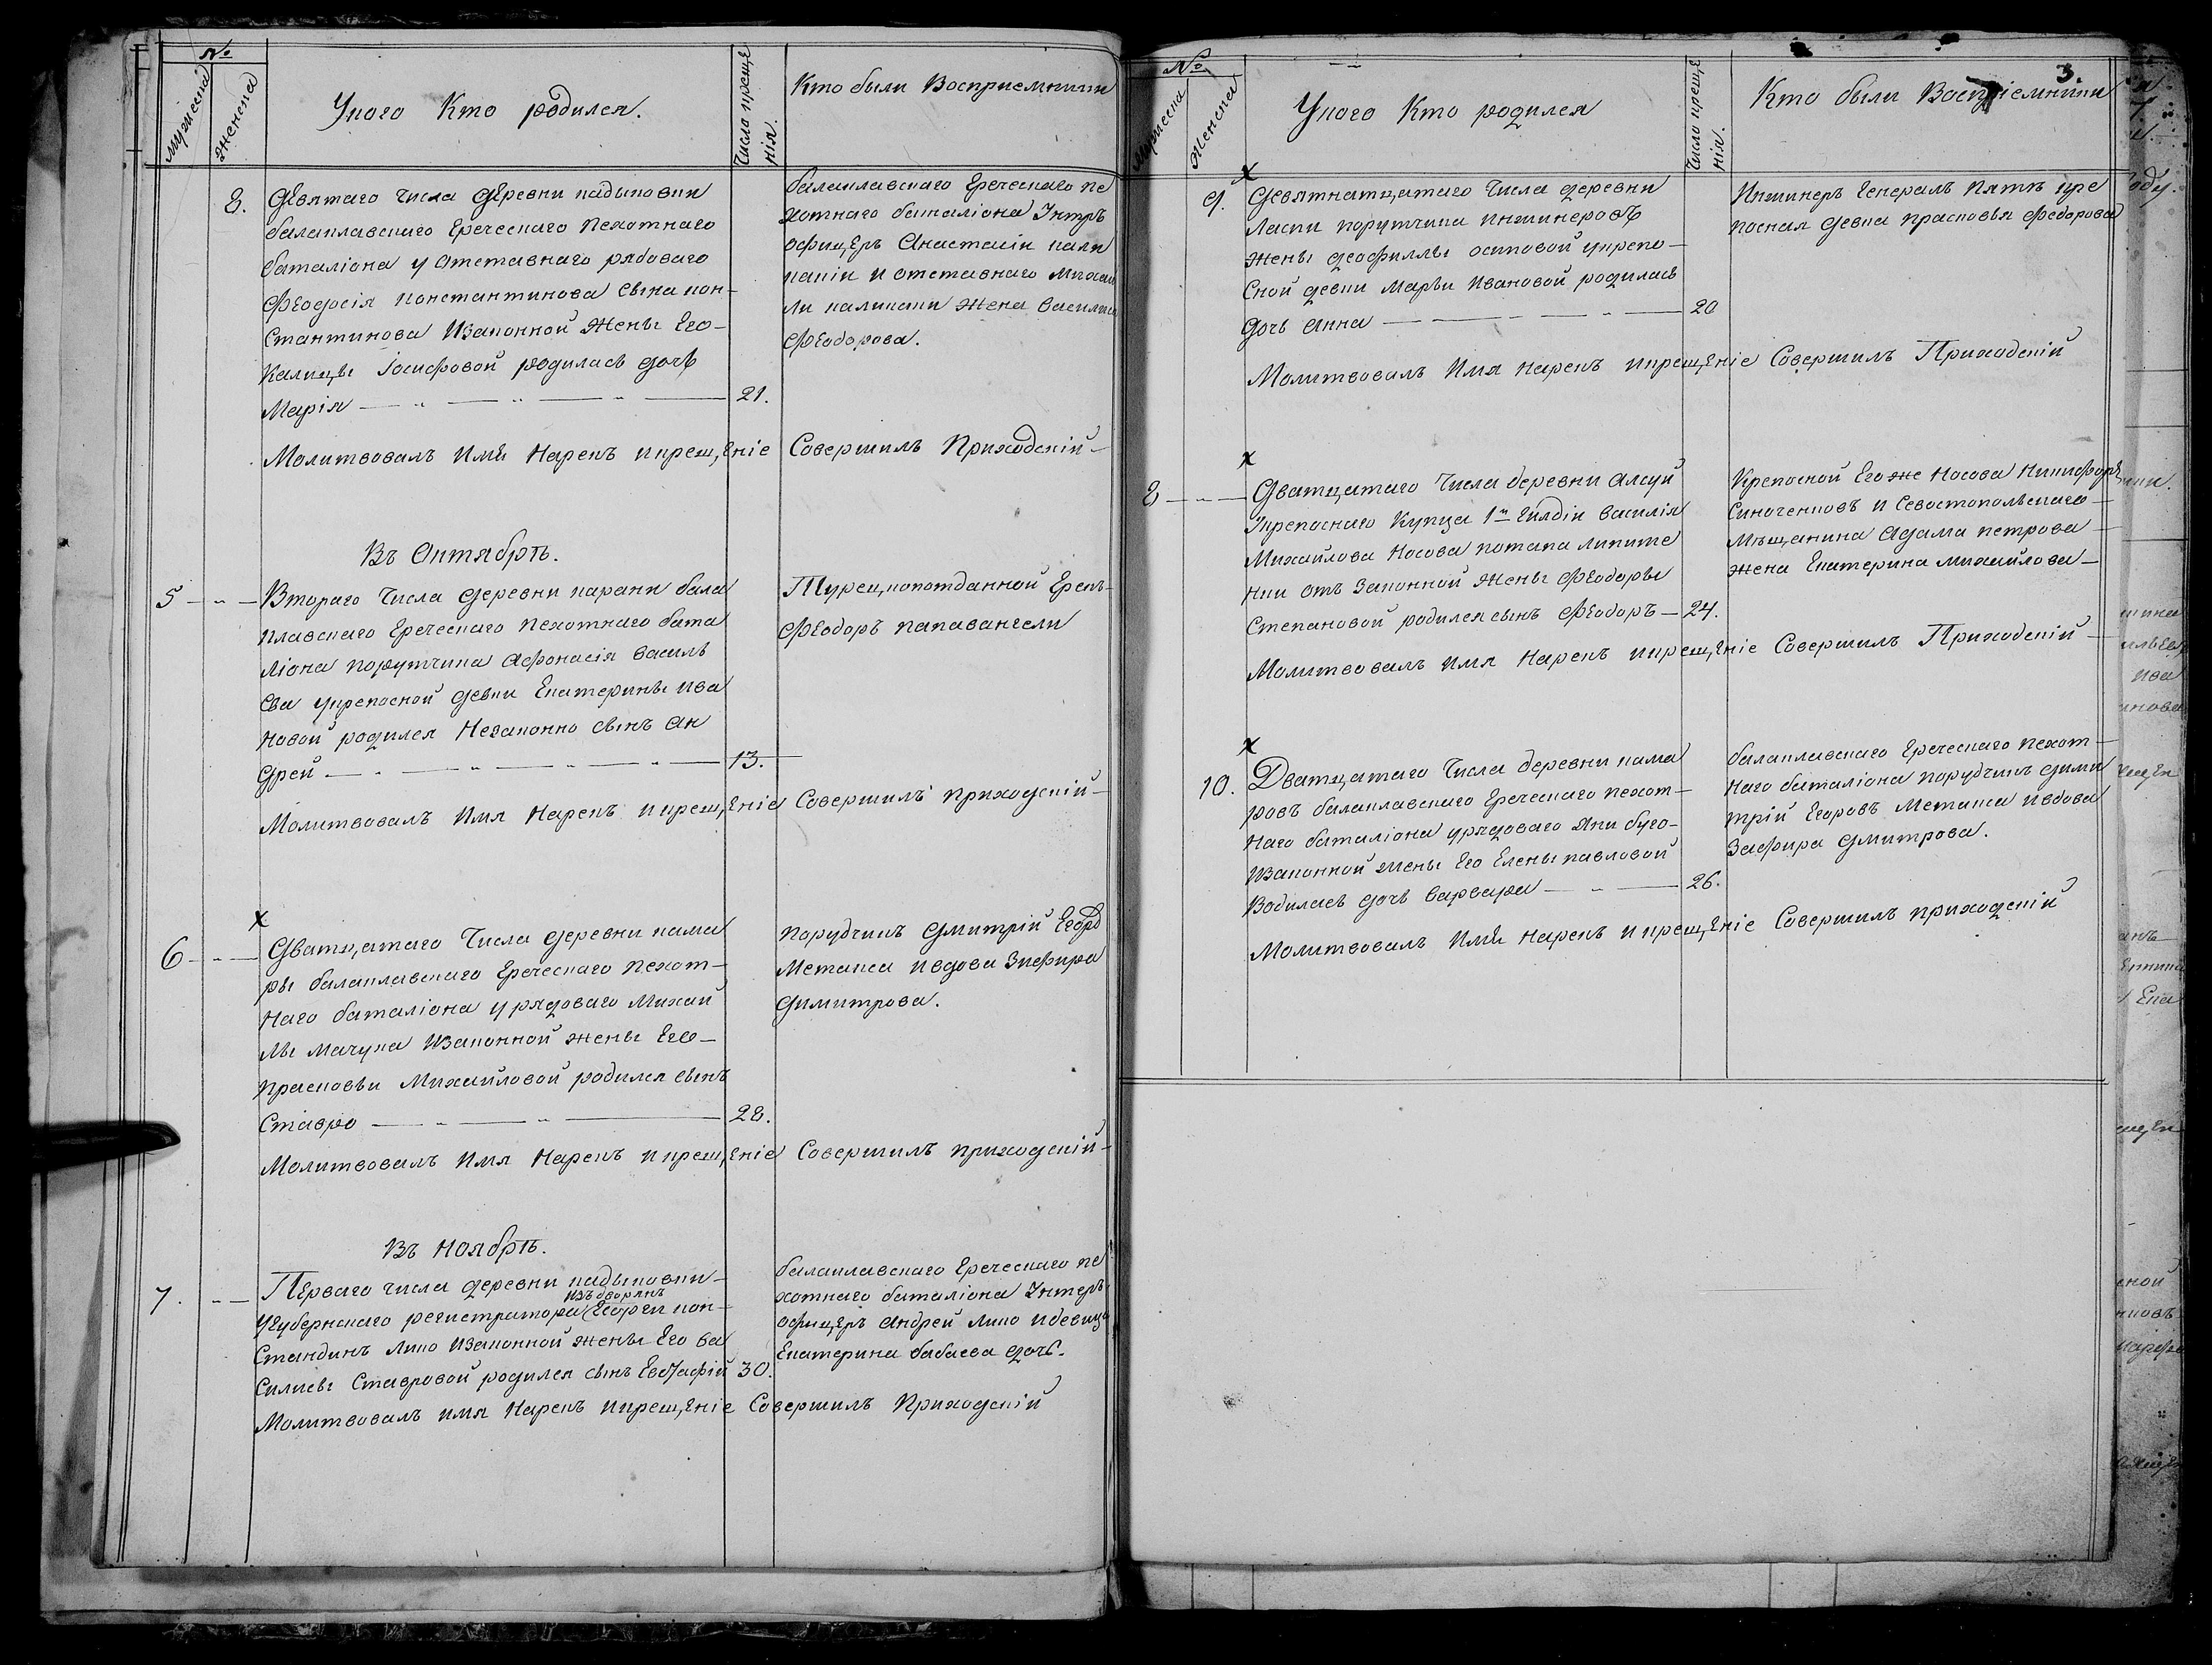 №
мужеска
женска
Укого Кто родился.
Число креще
нія.
Кто были Восприемники
8. Девятаго Числа Деревни кадыковки
балаклавскаго Греческаго Пехотнаго
баталіона у отставнаго рядоваго
Феодосія Константинова Сына кон-
стантинова Изаконной Жены Его-
Калицы Іосифовой родилась дочь
Марія 21.
балаклавскаго Греческаго пе
хотнаго баталіона Унтръ
офицеръ Анастасіи кали
накіи и отставнаго Михаи
ли калинаки Жена Василиса
Феодорова.
Молитвовалъ Имя Нарекъ икрещеніе Совершилъ Приходскій
Въ Октябрѣ.
5 Втораго Числа Деревни карани бала
клавскаго Греческаго Пехотнаго бата
ліона порутчика Афонасія василь
ева укрепосной девки Екатерины ива
новой родился Незаконно сынъ Ан
дрей 13.
Турецкопотданной Грекъ
Феодоръ папавангели
Молитвовалъ Имя Нарекъ икрещеніе Совершилъ приходскій
х
6 Дватцатаго Числа Деревни кама
ры балаклавскаго Греческаго пехот-
наго баталіона у рядоваго Михай
лы Мачука Изаконной жены Его-
прасковьи Михайловой родился сынъ
Ставро 28.
порудчикъ Дмитрій Егоров
Метакса ивдова Зафира
Димитрова.
Молитвовалъ Имя Нарекъ икрещеніе Совершилъ приходскій
Въ Ноябрѣ.
7. Перваго числа деревни кадыковки
изъ дворянъ
Угубернскаго регистратора Георги кон-
стандинъ Лико Изаконной жены Его ва
силисы Ставровой родился сынъ Евстафій 30.
балаклавскаго Греческаго пе
хотнаго баталіона Унтеръ
офицеръ Андрей Лико идевица
Екатерина бабаева дочь.
Молитвовалъ имя Нарекъ икрещеніе Совершилъ Приходскій
3.
№
мужеска
Женска
Укого Кто родился
Число креще
нія.
Кто были Восприемники
х
9. Девятнатцатаго Числа деревни
Ласпи порутчика инжинеровъ
жены феофиллы осиповой укрепо-
сной девки Марьи Ивановой родилась
дочь Анна 20
Инжинеръ Генералъ Каткъ кре
посная девка прасковья Федорова
Молитвовалъ Имя Нарекъ икрещеніе Совершилъ Приходскій
х
8 Дватцатаго Числа деревни Алсуй
Укрепоснаго Купца 1й Гилдіи василія
Михайлова Носова потапа
нки отъ Законной Жены Феодоры
Степановой родился сынъ Феодоръ 24.
Крепосной Его же Носова Никифоръ
и Севостопольскаго
Мѣщанина Адама петрова
жена Екатерина михайлова
Молитвовалъ имя Нарекъ икрещеніе Совершилъ Приходскій
х
10. Дватцатаго Числа деревни кама
ровъ балаклавскаго Греческаго пехот-
наго баталіона урядоваго Яни буго-
Изаконной жены Его Елены павловой
Водилась дочь варвара 26.
балаклавскаго Греческаго пехот-
наго баталіона порудчикъ дими
трій Егоровъ Метакса ивдова
Зафира дмитрова.
Молитвовалъ Имя нарекъ икрещеніе Совершилъ приходскій